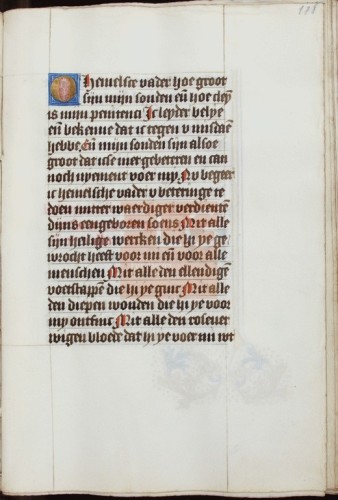 118
O hemelsce vader hoe groot
sijn mijn sonden eñ hoe cleȳ
is mijn penitenci Ic leyder belye
eñ bekenne dat ic tegen v misdaē
hebbe, Eñ mijn sonden sijn alsoe
groot dat icse niet gebeteren en can
noch nyement voer my Nv begeer
ic hemelsche vader v beteringe te
doen mitter waerdiger verdienten
dijns eengeboren soens Mit alle
sijn heilige wercken die hi ye ge
wrocht heeft voer mi eñ voer alle
menschen Mit alle den ellendigē
voerstappē die hi ye ginc Mit alle
den diepen wonden die hi ye voer
my ontfinc Mit alle den roseuer
wigen bloede dat hi ye voer mi wt